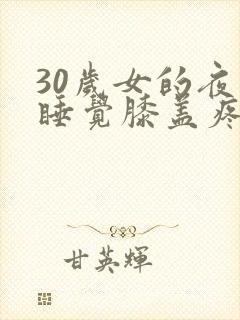 30歲女的夜
睡覺膝盖疼
甘英輝